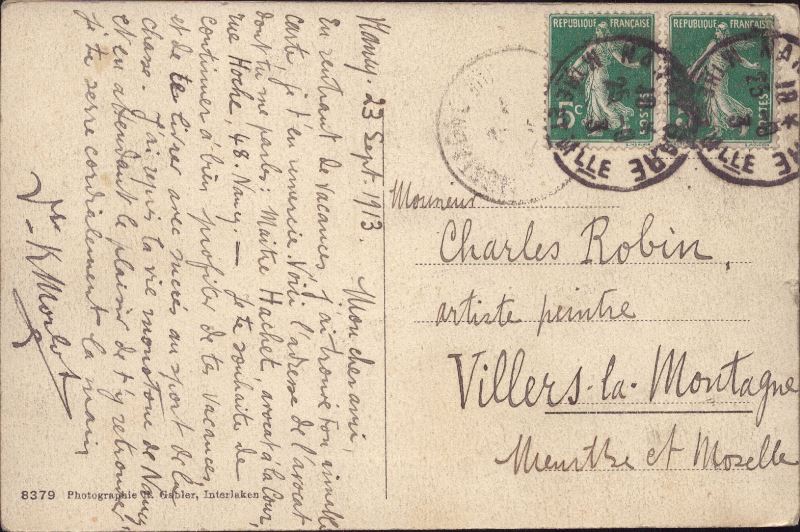 Nancy. 23 Sept. 1913. Mon cher ami,
En rentrant de vacances j'ai trouvé ton aimable
carte, je t'en remercie. Voici l'adresse de l'avocat
dont tu me parles : Maître Hachet, avocat à la Cour,
rue Hoche, 48. Nancy. — Je te souhaite de
continuer à bien profiter de tes vacances
et de te livrer avec succès au sport de la
chasse. J'ai repris la vie monotone de Nancy
et en attendant le plaisir de t'y retrouver
je te serre cordialement la main,
Morlot
8379 Photographie Gabler, Interlaken
REPUBLIQUE FRANÇAISE
5c
POSTES
REPUBLIQUE FRANÇAISE
POSTES
NANCY GARE
MTHE
Monsieur
Charles Robin,
artiste peintre
Villers-la-Montagne
Meurthe et Moselle